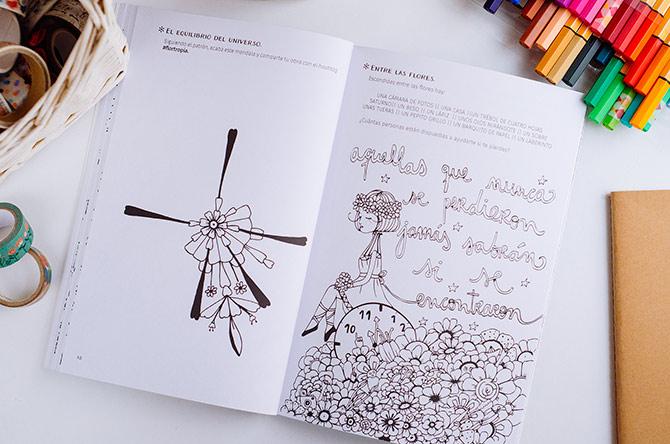 EL EQUILIBRIO DEL UNIVERSO.
Siguiendo el patrón, acaba este mandala y comparte tu obra con el hashtag
#flortropía.
ENTRE LAS FLORES.
Escondidos entre las flores hay:
UNA CÁMARA DE FOTOS || UNA CASA || UN TRÉBOL DE CUATRO HOJAS
SATURNO || UN BESO || UN LÁPIZ || UNOS OJOS MIRÁNDOTE || UN SOBRE
UNAS TIJERAS || UN PEPITO GRILLO || UN BARQUITO DE PAPEL || UN LABERINTO
¿Cuántas personas están dispuestas a ayudarte si te pierdes?
aquellas que nunca
se perdieron
jamás sabrán
si se
encontraron
11 12 1
10 2